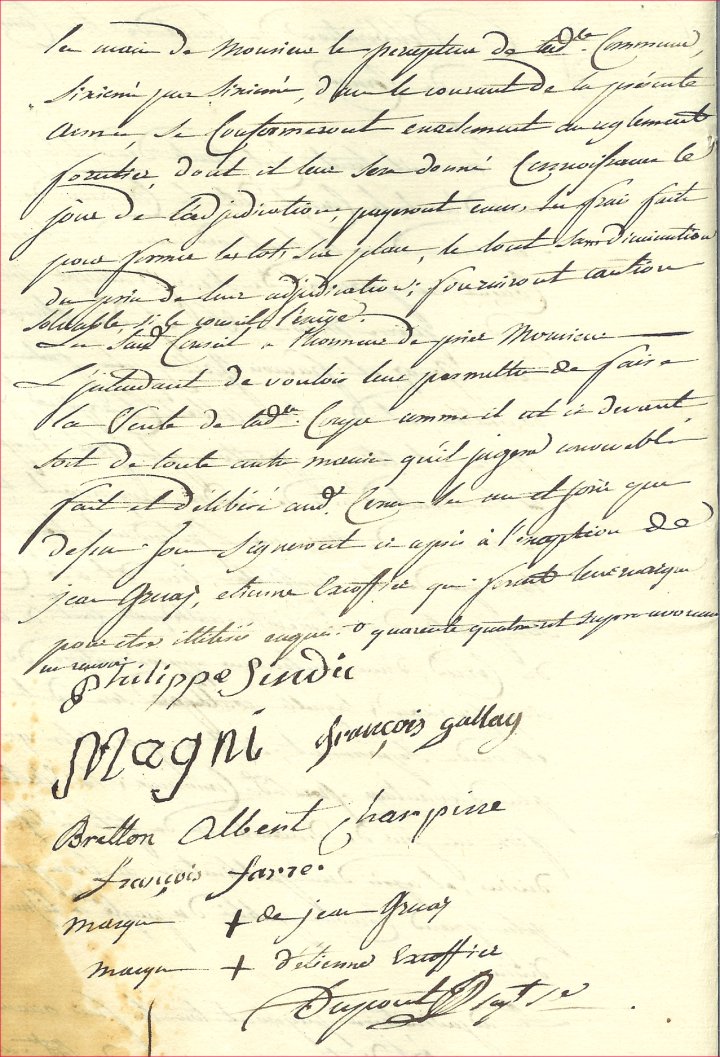 les mains de Monsieur le percepteur de lade. Commune,
Sixieme par Sixieme, dans le courant de la présente
année, se Conformeront exactement au reglement
forestier, dont il leur sera donné Connoissance le
jour de l'adjudication, payeront eux, les frais faits
pour former les lots sur place, le tout sans diminution
du prix de leur adjudication; fourniront caution
solvable si le conseil l'exige.
Le Susd. Conseil a l'honneur de prier Monsieur
L'jntendant de vouloir leur permettre de faire
la Vente de lade. Coupe comme il est ci devant,
soit de toute autre maniere qu'il jugera convenable
fait et délibéré aud. les an et jour que
dessus Signeront ci après à l'exception de
jean Gruaz, etienne Excoffier qui feront leur marque
pour être illitérés enquis. quarante quatre et supra avons au
renvoi
Philippe Sindic
Magni françois gallay
Bretton Albert Charpinne
françois favre.
marque + de jean Gruaz
marque + d'étienne Excoffier
Dupont Secre.